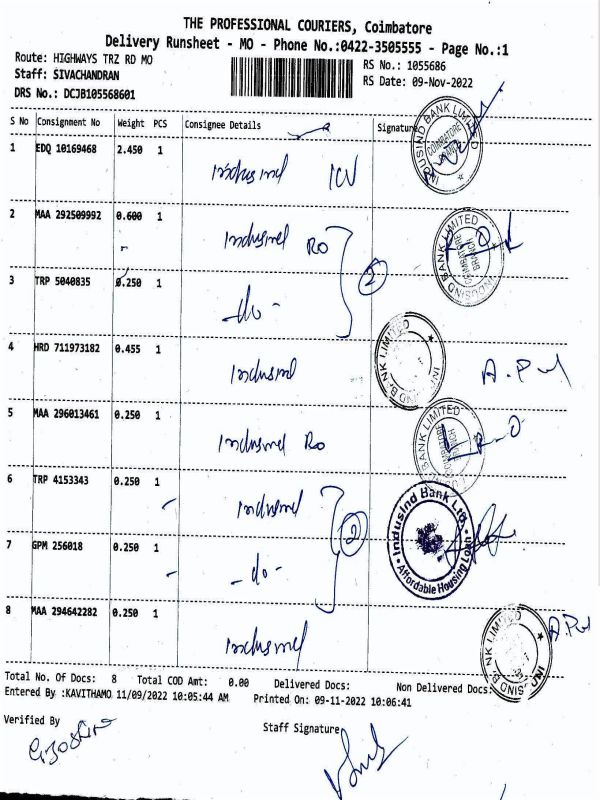 THE PROFESSIONAL COURIERS, Coimbatore
Delivery Runsheet - MO - Phone No.:0422-3505555 - Page No.:1
Route: HIGHWAYS TRZ RD MO
RS No.: 1055686
Staff: SIVACHANDRAN
RS Date: 09-Nov-2022
DRS No.: DCJB105568601
S No Consignment No Weight PCS Consignee Details Signature
1 EDQ 10169468 2.450 1 Indusind ICU
INDUSIND BANK LIMITED
COIMBATORE
2 MAA 292509992 0.600 1 Indusind RO
INDUSIND BANK LIMITED
COIMBATORE
BRANCH
2
3 TRP 5040835 0.250 1 -do-
4 HRD 711973182 0.455 1 Indusind A.P
5 MAA 296013461 0.250 1 Indusind RO
BANK LIMITED
6 TRP 4153343 0.250 1 Indusind
2
IndusInd Bank Ltd.
Affordable Housing Loan
7 GPM 256018 0.250 1 -do-
8 MAA 294642282 0.250 1 Indusind
LIMITED
Total No. Of Docs: 8 Total COD Amt: 0.00 Delivered Docs: Non Delivered Docs:
Entered By :KAVITHAMO 11/09/2022 10:05:44 AM Printed On: 09-11-2022 10:06:41
Verified By
Staff Signature